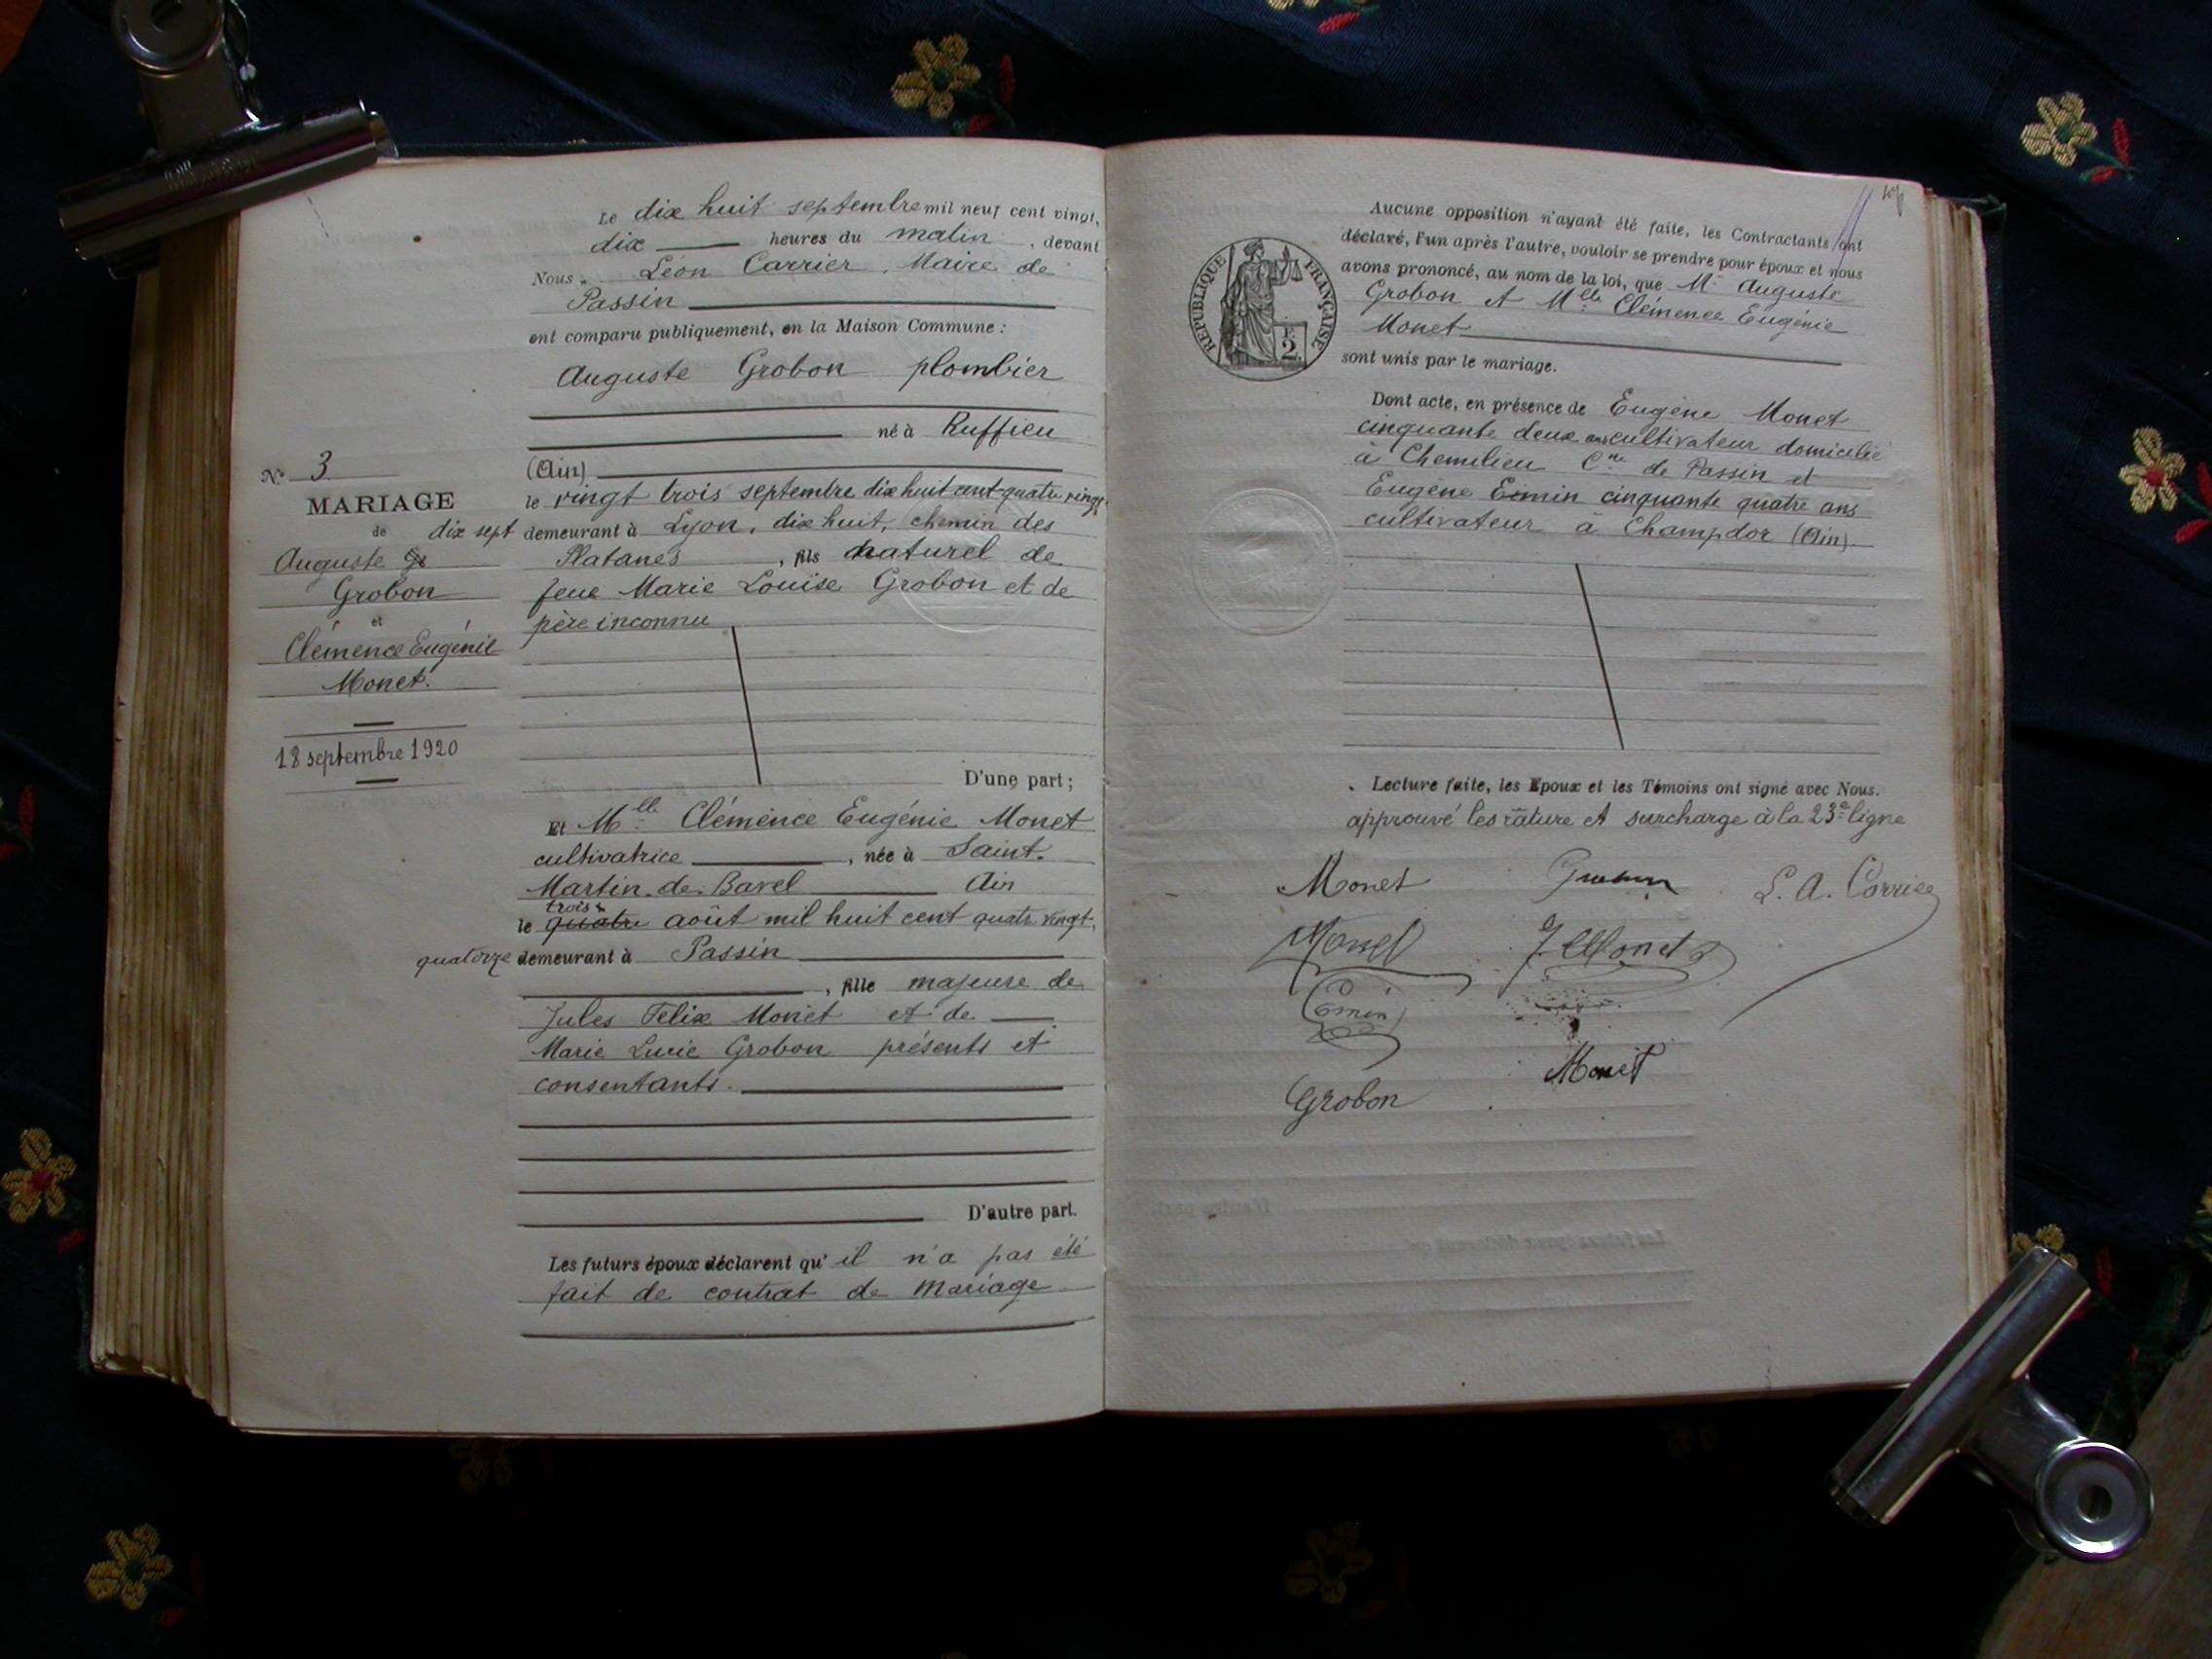 Le dix huit septembre mil neuf cent vingt,
dix heures du matin, devant
Nous Léon Carrier, Maire de
Passin
ont comparu publiquement, en la Maison Commune :
Auguste Grobon plombier
né à Ruffieu
(Ain)
le vingt trois septembre dix huit cent quatre vingt
dix sept demeurant à Lyon, dix huit, chemin des
Platanes, fils naturel de
feue Marie Louise Grobon et de
père inconnu
D'une part ;
N° 3
MARIAGE
de
Auguste
Grobon
et
Clémence Eugénie
Monet.
18 septembre 1920
Et Mlle Clémence Eugénie Monet
cultivatrice, née à Saint-
Martin-de-Bavel Ain
trois
le quatre août mil huit cent quatre vingt,
quatorze demeurant à Passin
, fille majeure de
Jules Felix Monet et de
Marie Lucie Grobon présents et
consentants.
D'autre part.
Les futurs époux déclarent qu'il n'a pas été
fait de contrat de mariage
Aucune opposition n'ayant été faite, les Contractants ont
déclaré, l'un après l'autre, vouloir se prendre pour époux et nous
avons prononcé, au nom de la loi, que Mr Auguste
Grobon et Mlle Clémence Eugénie
Monet
sont unis par le mariage.
REPUBLIQUE FRANÇAISE
2
Dont acte, en présence de Eugène Monet
cinquante deux ans cultivateur domicilié
à Chemilieu Cne de Passin et
Eugène Eimin cinquante quatre ans
cultivateur à Champdor (Ain)
Lecture faite, les Epoux et les Témoins ont signé avec Nous.
approuvé les râture et surcharge à la 23e ligne
Monet Grobon L. A. Carrier
Monet J. Monet
Emin
Monet
Grobon